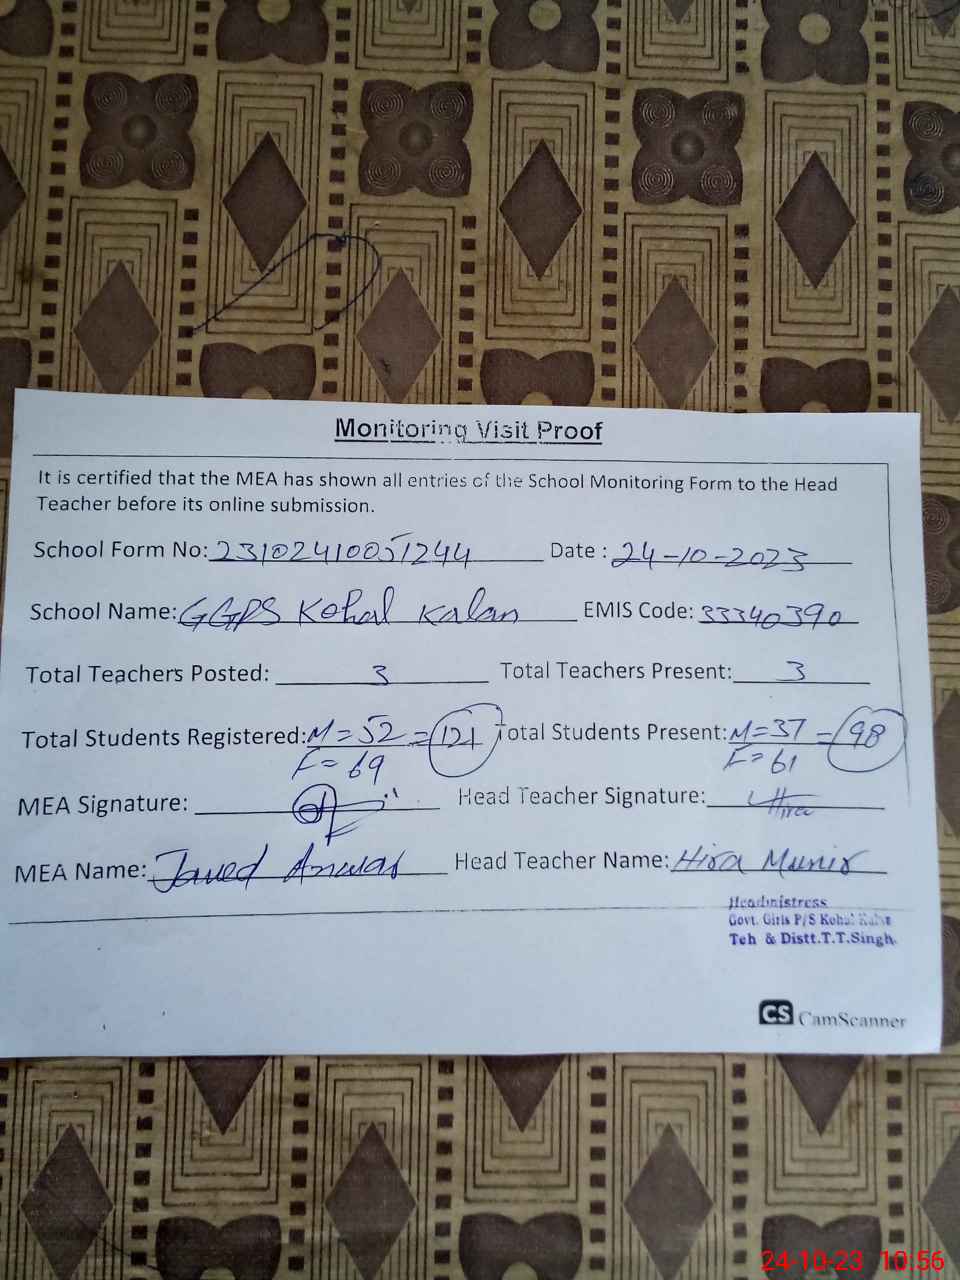 Monitoring Visit Proof
It is certified that the MEA has shown all entries of the School Monitoring Form to the Head
Teacher before its online submission.
School Form No: 23102410051244 Date : 24-10-2023
School Name: GGPS Kohal Kalan EMIS Code: 33340390
Total Teachers Posted: 3 Total Teachers Present: 3
Total Students Registered: M=52 = 121 Total Students Present: M=37 = 98
F=69 F=61
MEA Signature: Head Teacher Signature: Hira
MEA Name: Javed Anwar Head Teacher Name: Hira Munir
Headmistress
Govt. Girls P/S Kohal Kalan
Teh & Distt.T.T.Singh.
CS CamScanner
24-10-23 10:56